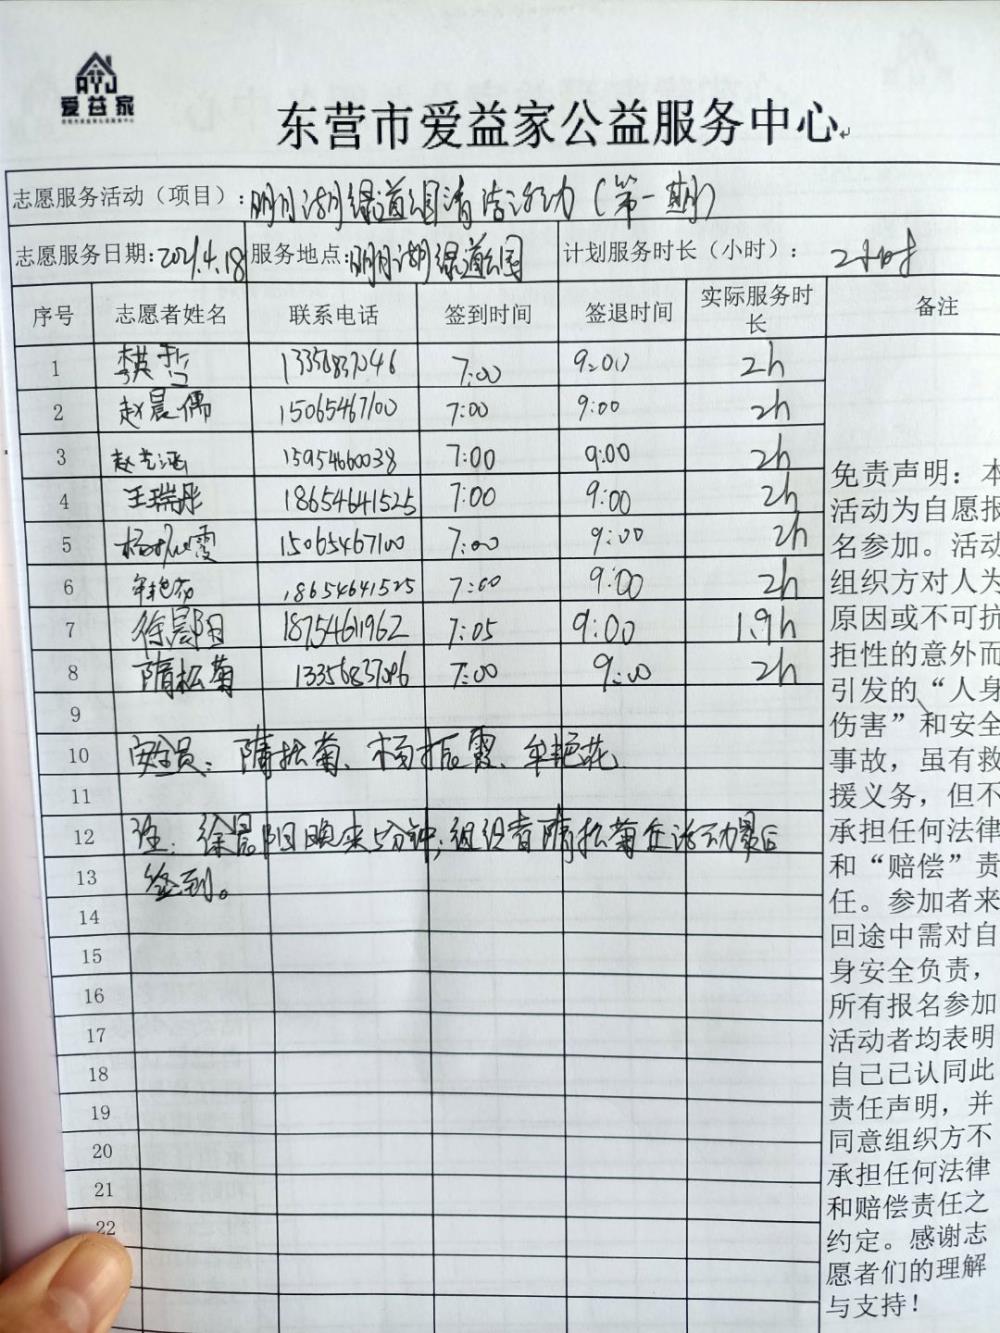 爱益家
东营市爱益家公益服务中心
志愿服务活动（项目）：明月湖绿道园清洁活动（第一期）
志愿服务日期：2021.4.18 服务地点：明月湖绿道公园 计划服务时长（小时）： 2小时
序号 志愿者姓名 联系电话 签到时间 签退时间 实际服务时长 备注
1 7:00 9:00 2h
2 赵晨儒 15065467100 7:00 9:00 2h
3 赵 15954660038 7:00 9:00 2h
4 王瑞彤 18654641525 7:00 9:00 2h
5 杨振霞 15065467100 7:00 9:00 2h
6 牟艳花 18654641525 7:00 9:00 2h
7 徐晨阳 18754611962 7:05 9:00 1.9h
8 隋松菊 13356837046 7:00 9:00 2h
9
10 安全员：隋松菊、杨振霞、牟艳花
11
12 注：徐晨阳晚来5分钟；组织者隋松菊在活动最后
13 签到。
14
15
16
17
18
19
20
21
22
免责声明：本
活动为自愿报
名参加。活动
组织方对人为
原因或不可抗
拒性的意外而
引发的“人身
伤害”和安全
事故，虽有救
援义务，但不
承担任何法律
和“赔偿”责
任。参加者来
回途中需对自
身安全负责，
所有报名参加
活动者均表明
自己已认同此
责任声明，并
同意组织方不
承担任何法律
和赔偿责任之
约定。感谢志
愿者们的理解
与支持！